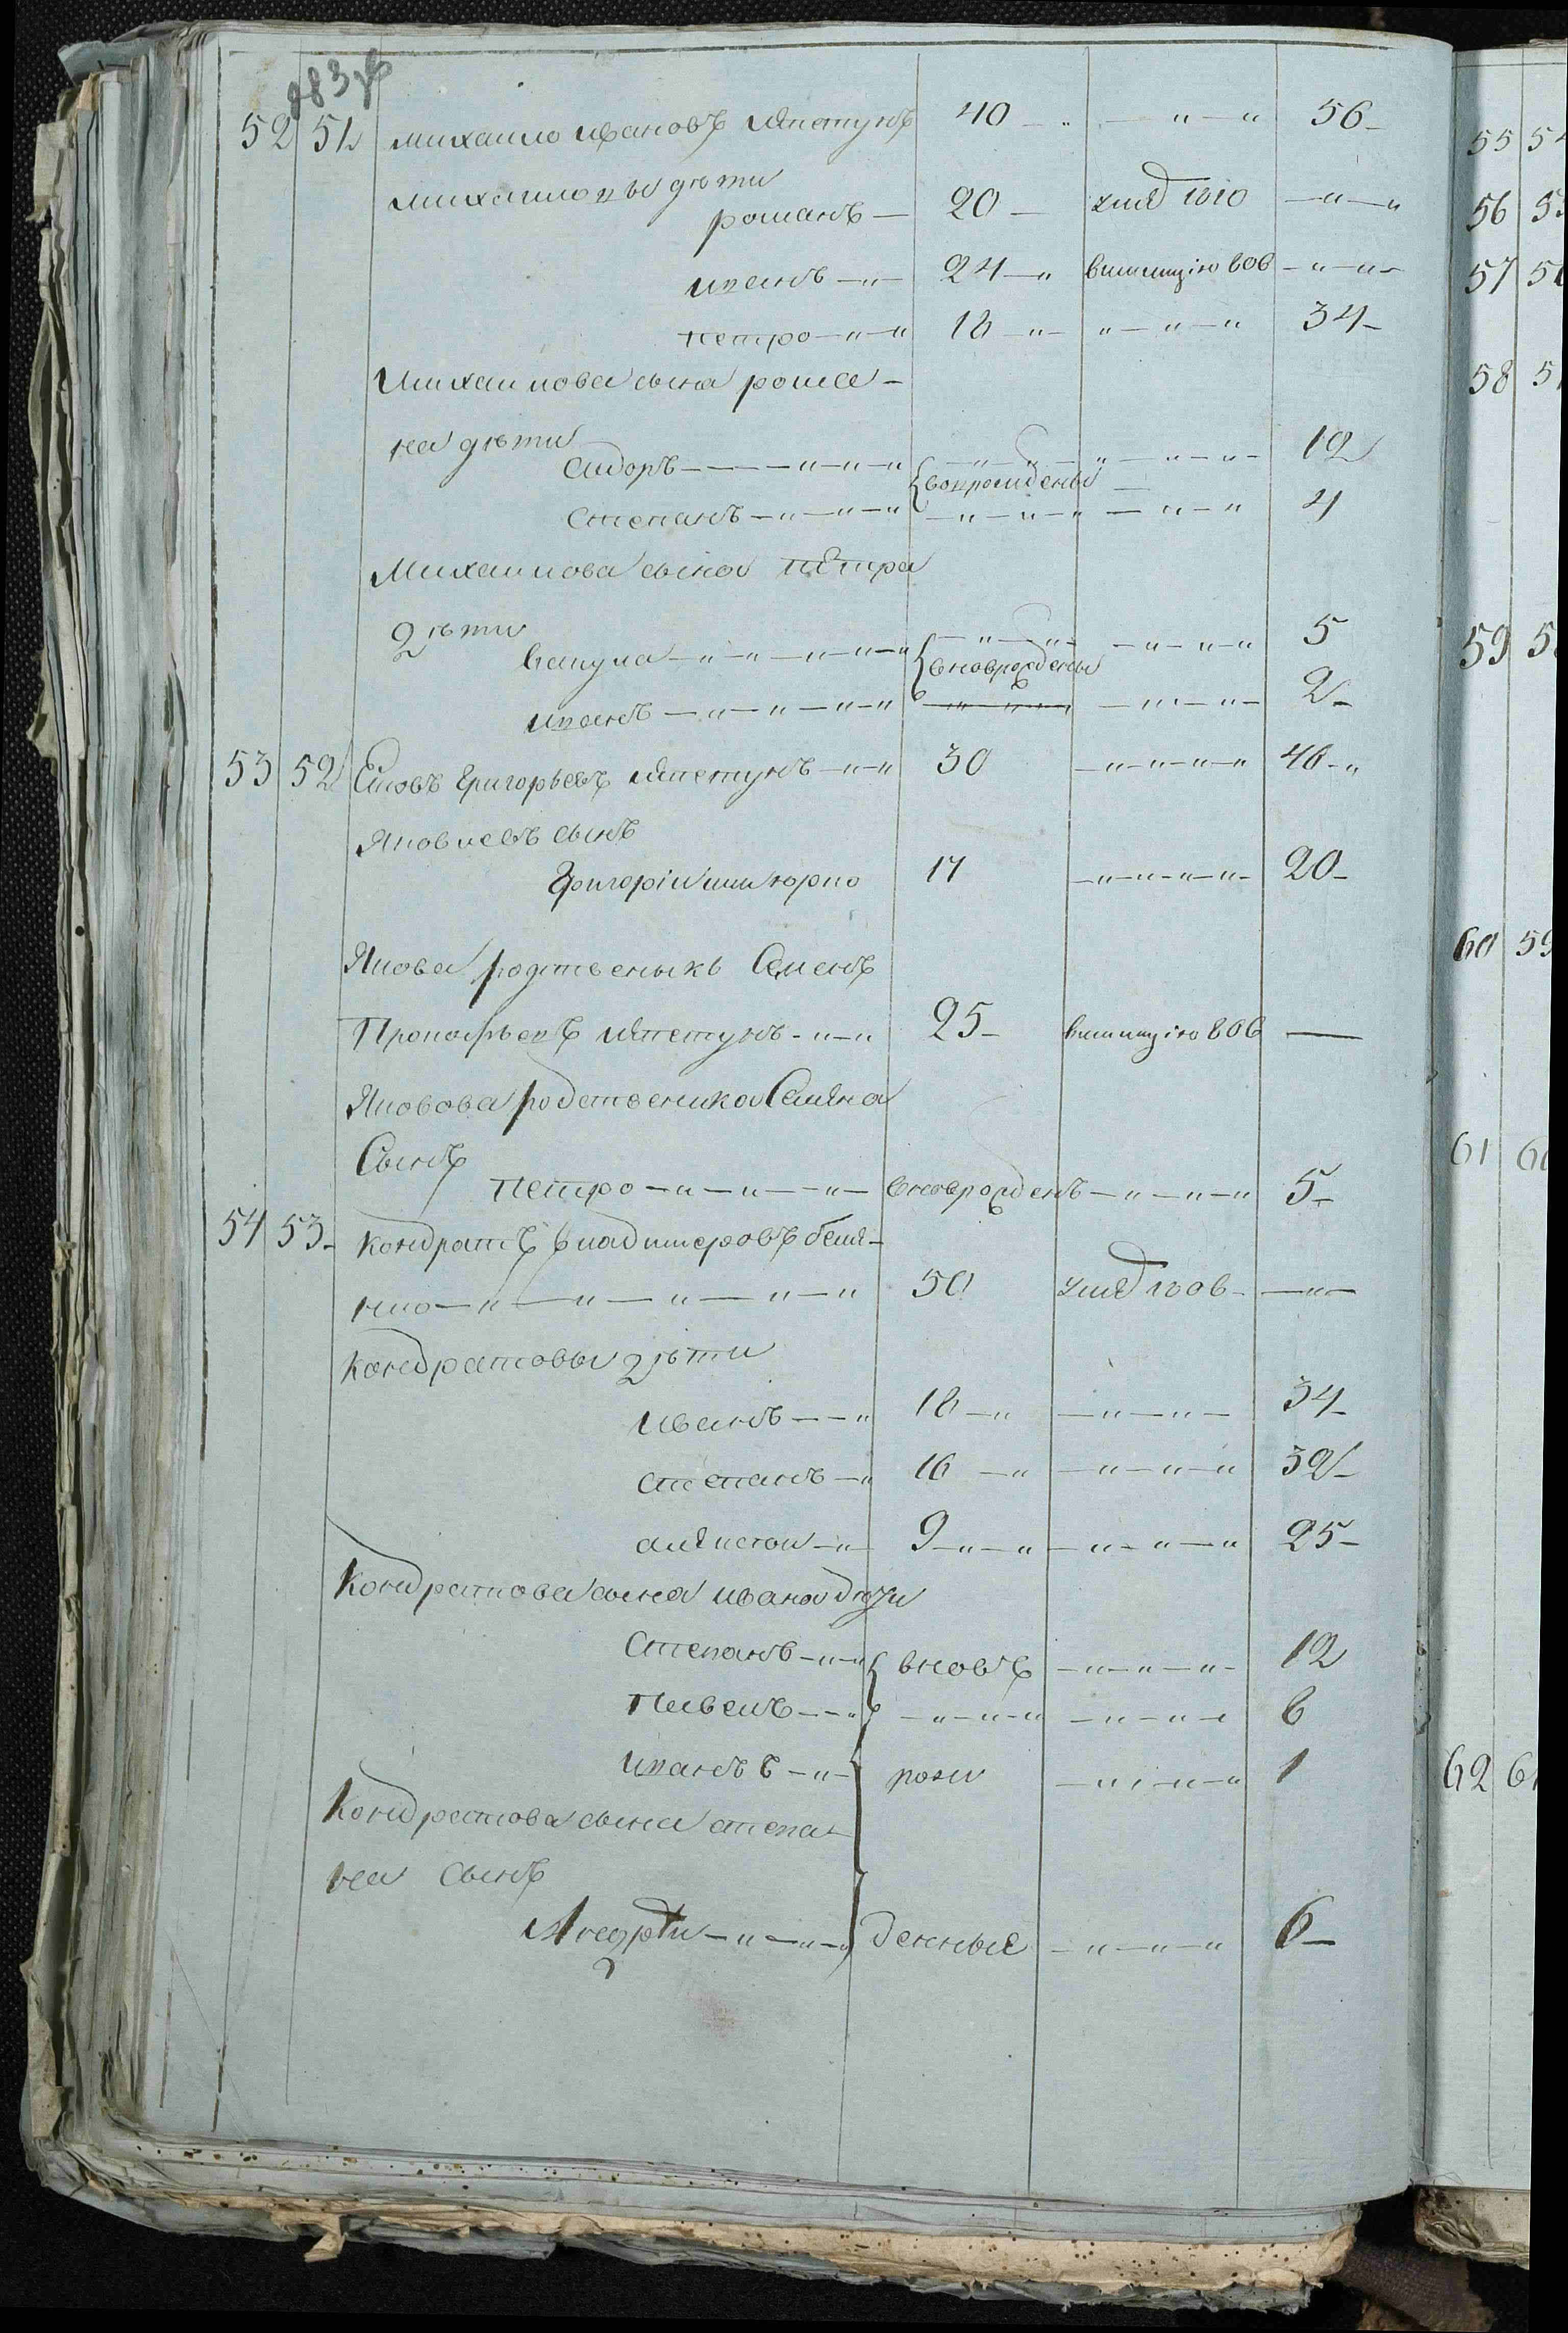 983 об
52 51 Михаило Ивановъ 40 — „ — „ — „ 56 —
Михаиловы дѣти
романъ — 20 — умер 1810 — „ — „
иванъ — „ — 24 — „ 806 — „ — „ —
петро — „ — „ 18 — „ — „ — „ — „ 34 —
Михаилова сына рома –
на дѣти
Сидоръ — — — „ — „ — „ — „ — „ — „ — „ — „ — 12
Степанъ — „ — „ — „ — „ — „ — „ — „ — „ 4
Михаилова сына петра
дѣти
вакула — „ — „ — „ — „ — „ — „ — „ — „ — „ 5
вноврожденны
иванъ — „ — „ — „ — „ — „ — „ — 2 —
53 52 Яковъ Григорьевъ — „ — „ 30 — „ — „ — „ — „ 46 — „
Яковлевъ сынъ
Григорiи 17 — „ — „ — „ — „ — 20 —
Якова родственыкъ Семенъ
Прокофьевъ — „ — „ 25 — 806 —
Яковова родственика Семена
Сынъ
петро — „ — „ — „ — вноврожденъ — „ — „ — „ 5 —
54 53 — Кондратъ Владимеровъ
— „ — „ — „ — „ — „ 50 умер 1806 — — „ —
Кондратовы дѣти
иванъ — — „ 18 — „ — „ — „ — 34 —
степанъ — „ 16 — „ — „ — „ — „ 32 —
алексеи — „ — 9 — „ — „ — „ — „ — „ 25 —
Кондратова сына ивана дѣти
Степанъ — „ — „ вновъ — „ — „ — „ — 12
Павелъ — — „ — „ — „ — „ — „ — „ — 6
иванъ — „ — рож — „ — „ — „ 1
Кондратова сына степа –
на Сынъ
Андреи — „ — „ — „ денные — „ — „ — „ 6 —
55 54
56 55
57 56
58 57
59 58
60 59
61 60
62 61